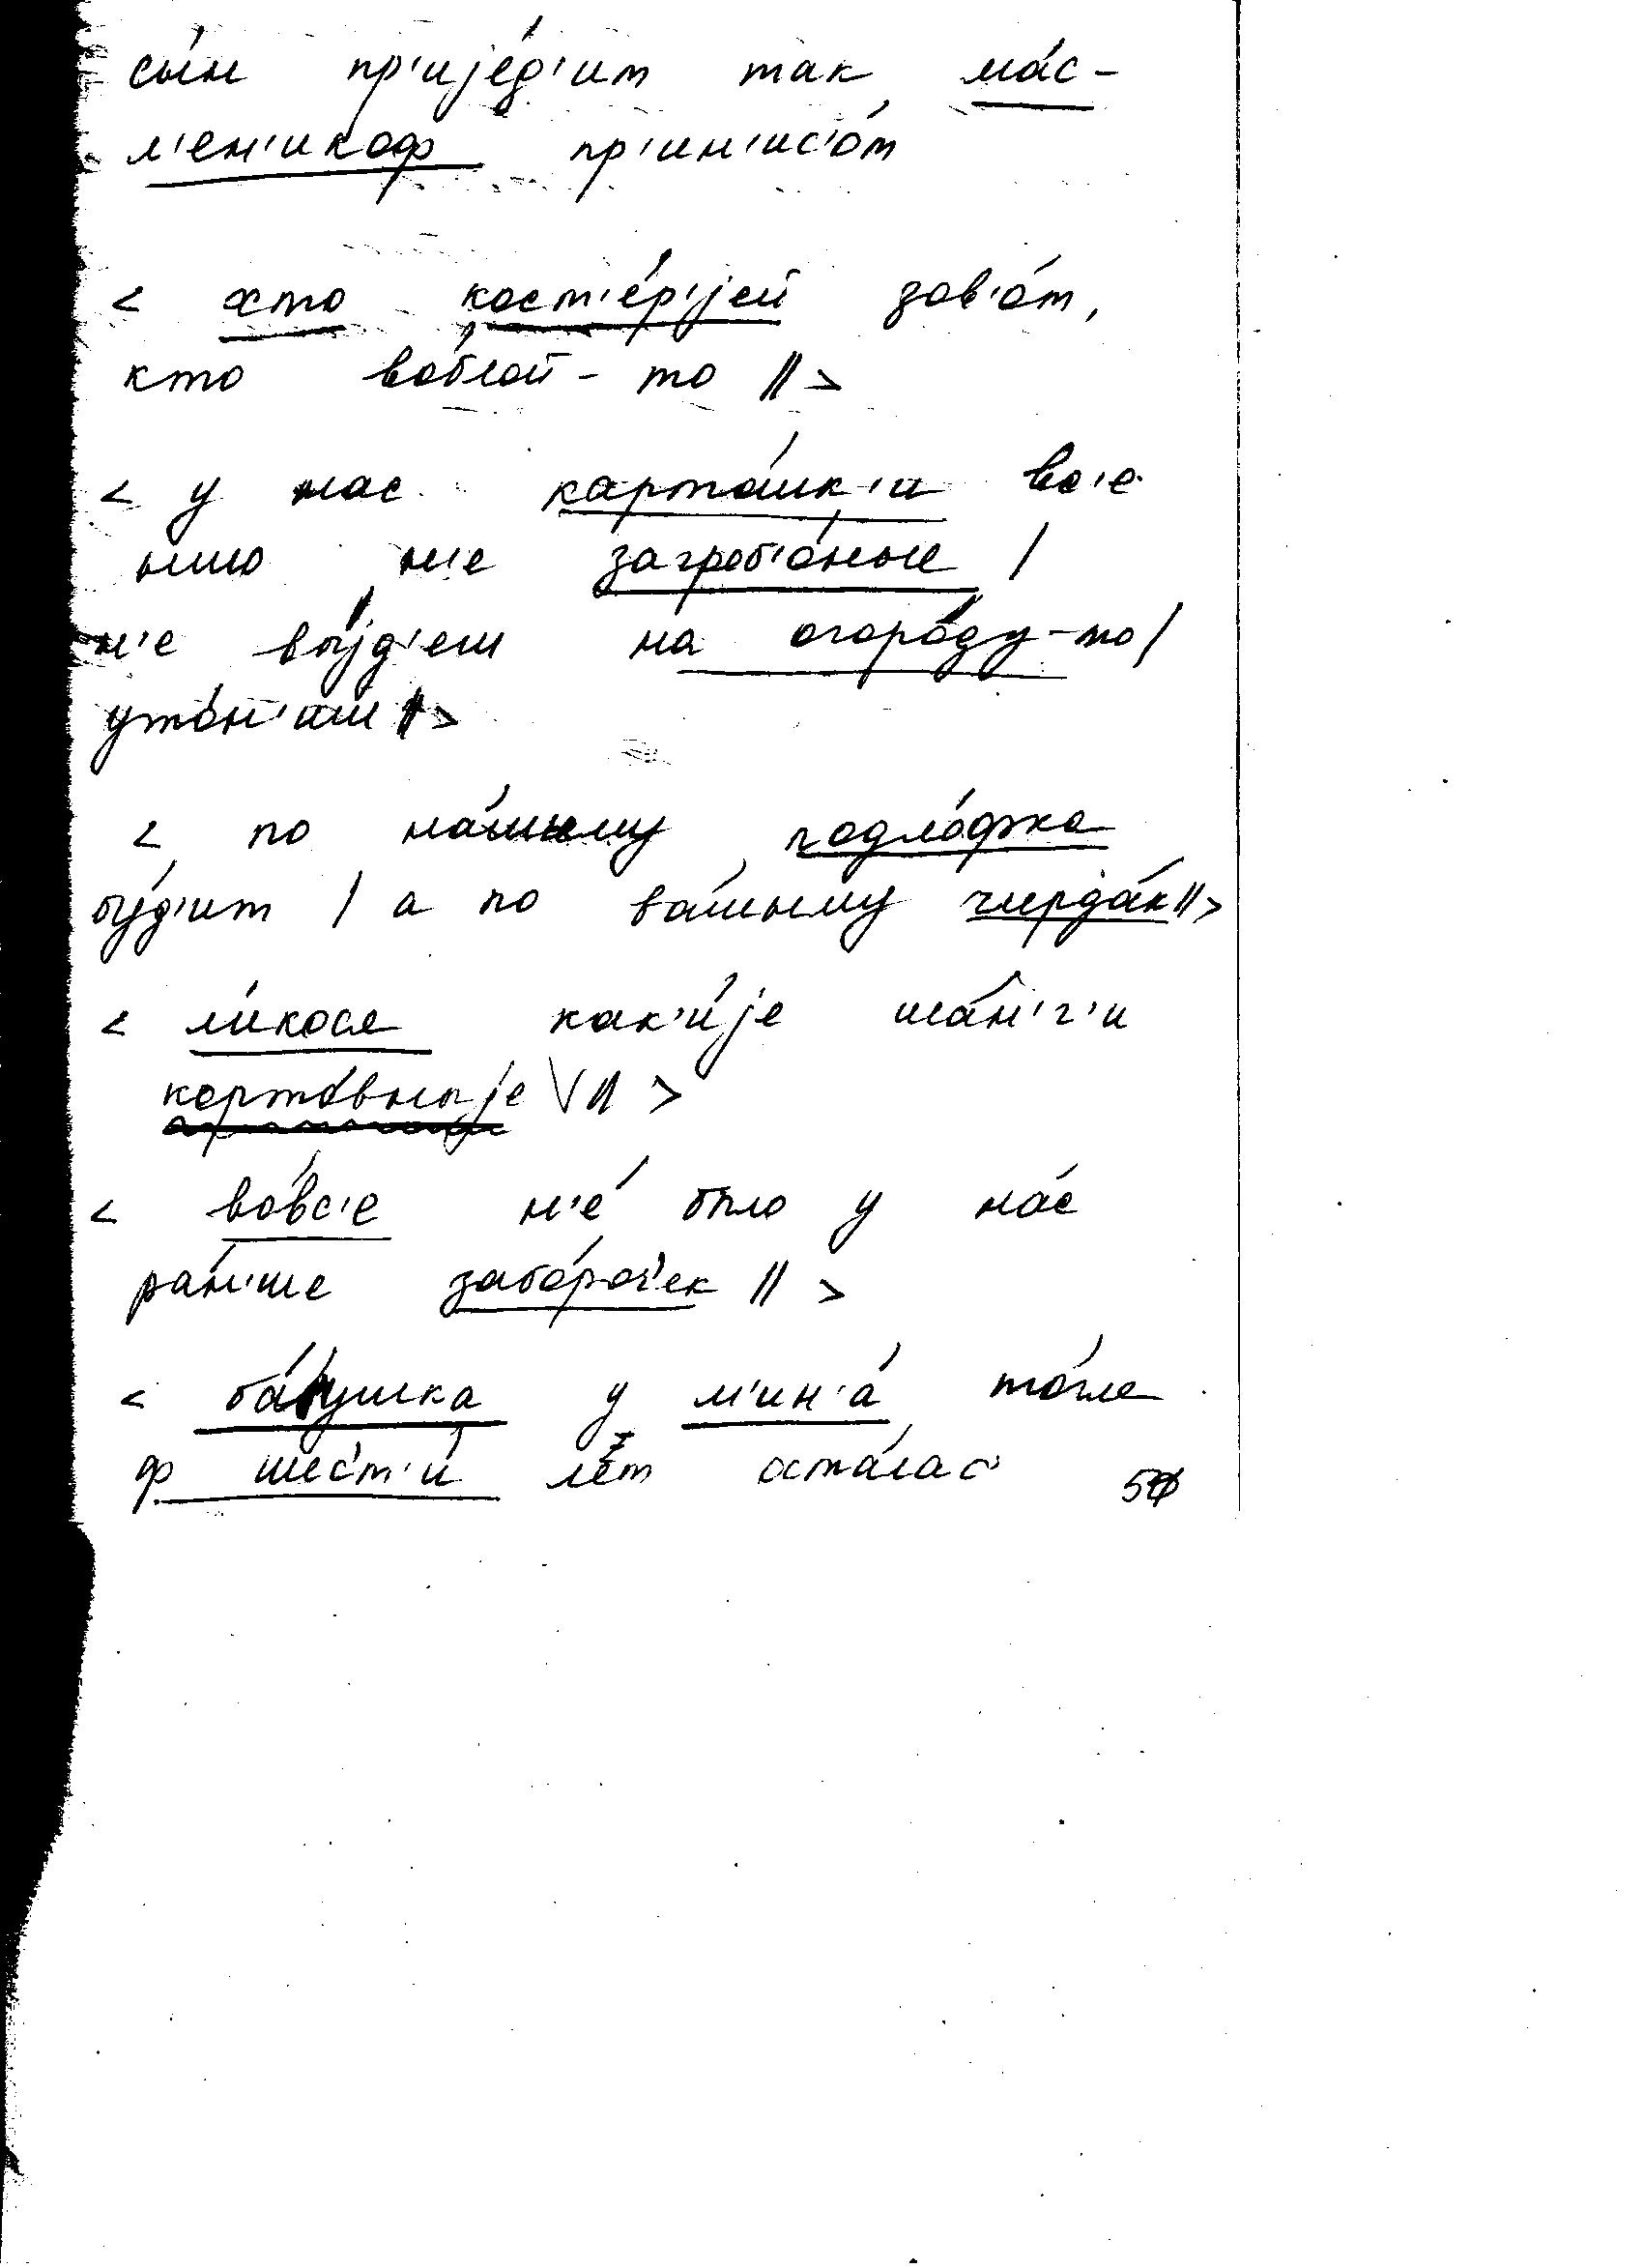 сы́н пр'ијéд'ит так мáс-
л'ен'икоф пр'ин'ис'óт
< хто кост'éр'јей зов'óт,
кто вóблой-то || >
< у нас картóшк'и вс'е
ишо н'е загреб'óные /
н'е вы́јд'еш на огорóду-то /
утóн'иш || >
< по нáшыму подлóфка
бу́д'ит / а по вáшыму чирдáк || >
< ли́кося как'и́је шáн'г'и
кортóвныје \/ || >
< вóвс'е н'é было у нáс
рáн'ше забóроч'ек || >
< бáтушка у м'ин'á тóже
ф шес'т'и́ лет остáлас'
50